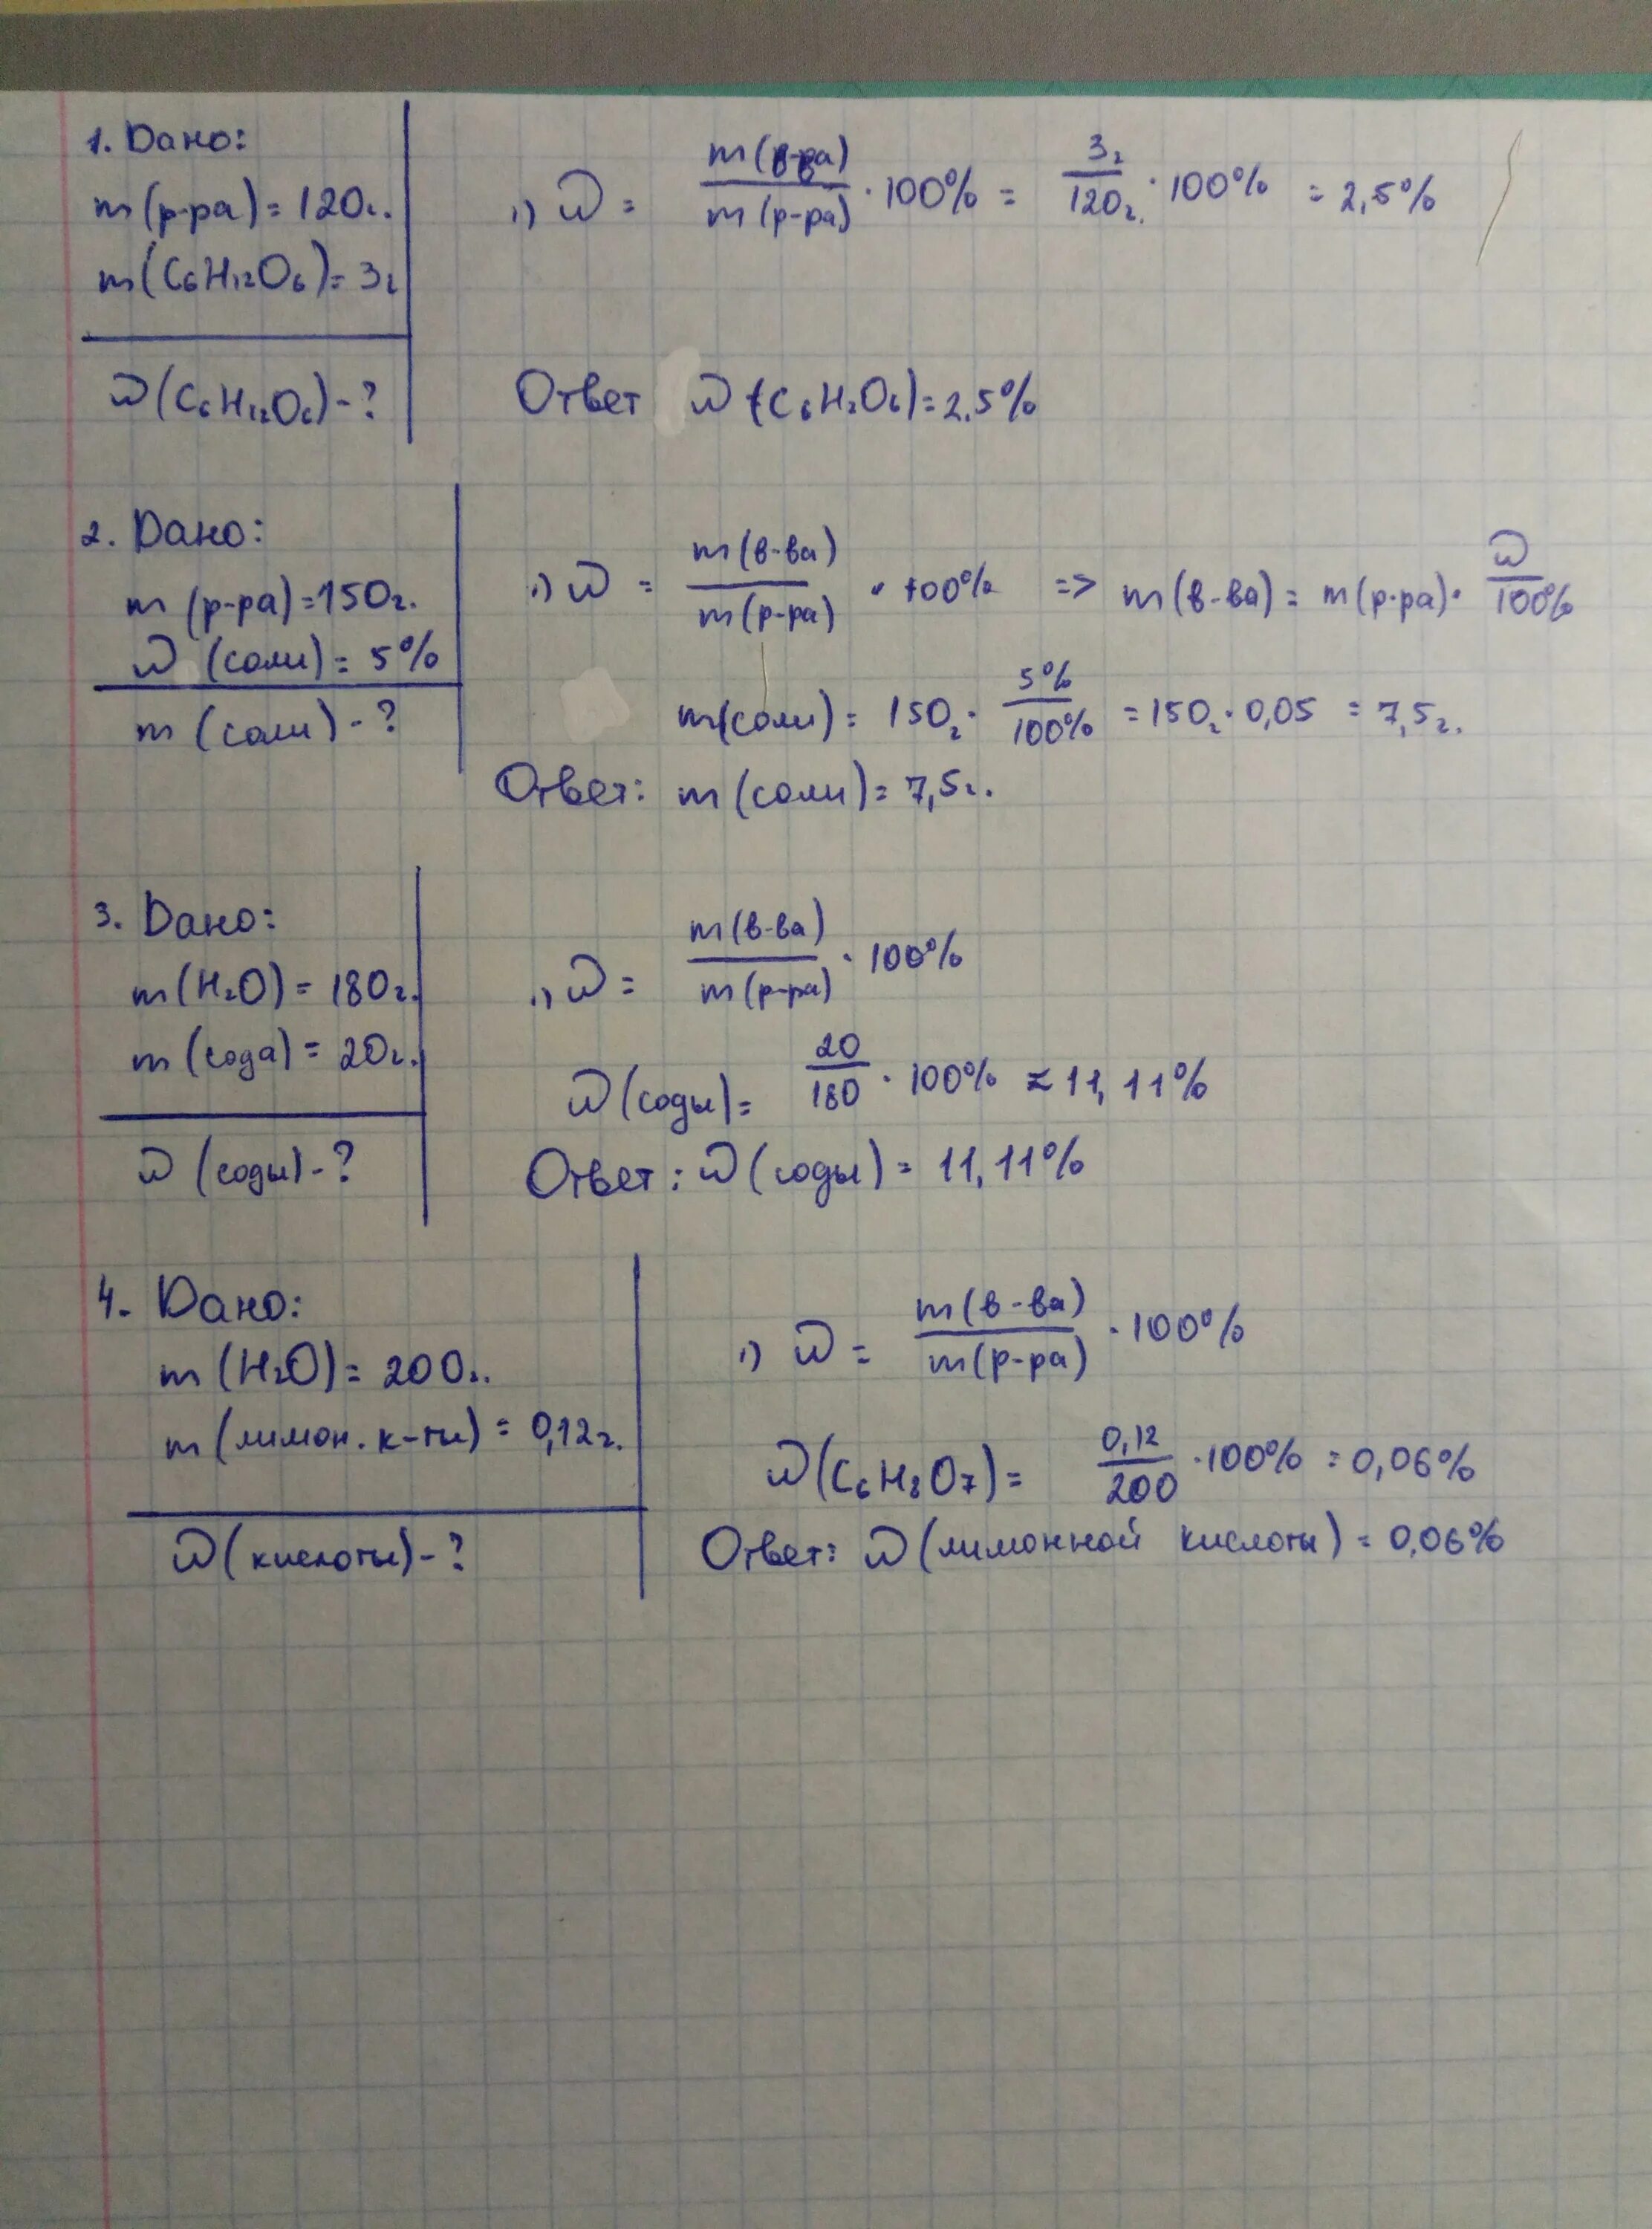 1. Дано:
m(р-ра)=120г.
m(C₆H₁₂O₆)=3г
ω(C₆H₁₂O₆)-?
1) ω = m(в-ва)/m(р-ра) · 100% = 3г/120г. · 100% = 2,5%
Ответ ω (C₆H₂O₆)=2.5%
2. Дано:
m (р-ра)=150г.
ω (соли)= 5%
m (соли)-?
1) ω = m(в-ва)/m(р-ра) · 100% => m(в-ва)= m(р-ра)· ω/100%
m(соли)= 150г· 5%/100% =150г·0,05 = 7,5г.
Ответ: m (соли)= 7,5г.
3. Дано:
m(H₂O)= 180г.
m (сода)= 20г.
ω (соды)-?
1) ω = m(в-ва)/m(р-ра) · 100%
ω(соды)= 20/180 · 100% ≈ 11,11%
Ответ: ω(соды)= 11,11%
4. Дано:
m (H₂O)= 200г.
m (лимон. к-ты)= 0,12г.
ω(кислоты)-?
1) ω = m(в-ва)/m(р-ра) ·100%
ω(C₆H₈O₇)= 0,12/200 ·100% =0,06%
Ответ: ω (лимонной кислоты)= 0,06%